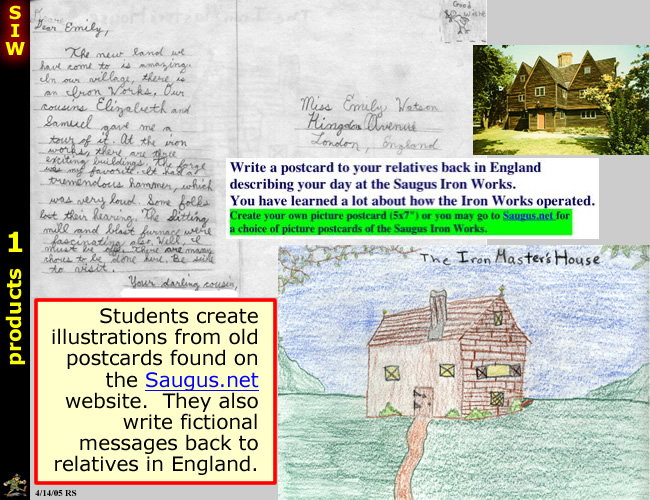 S
I
W
products 1
Dear Emily,
The new land we
have come to is amazing.
In our village, there is
an Iron Works. Our
cousins Elizabeth and
Samuel gave me a
tour of it. At the iron
works, there are three
exciting buildings. The forge
was my favorite. It had a
tremendous hammer, which
was very loud. Some folks
lost their hearing. The slitting
mill and blast furnace were
fascinating also. Well, I
must be off. There are many
chores to be done here. Be sure
to visit.
Your darling cousin,
Good
Miss Emily Watson
Kingdom Avenue
London, England
Write a postcard to your relatives back in England
describing your day at the Saugus Iron Works.
You have learned a lot about how the Iron Works operated.
Create your own picture postcard (5x7") or you may go to Saugus.net for
a choice of picture postcards of the Saugus Iron Works.
The Iron Master's House
Students create
illustrations from old
postcards found on
the Saugus.net
website. They also
write fictional
messages back to
relatives in England.
4/14/05 RS